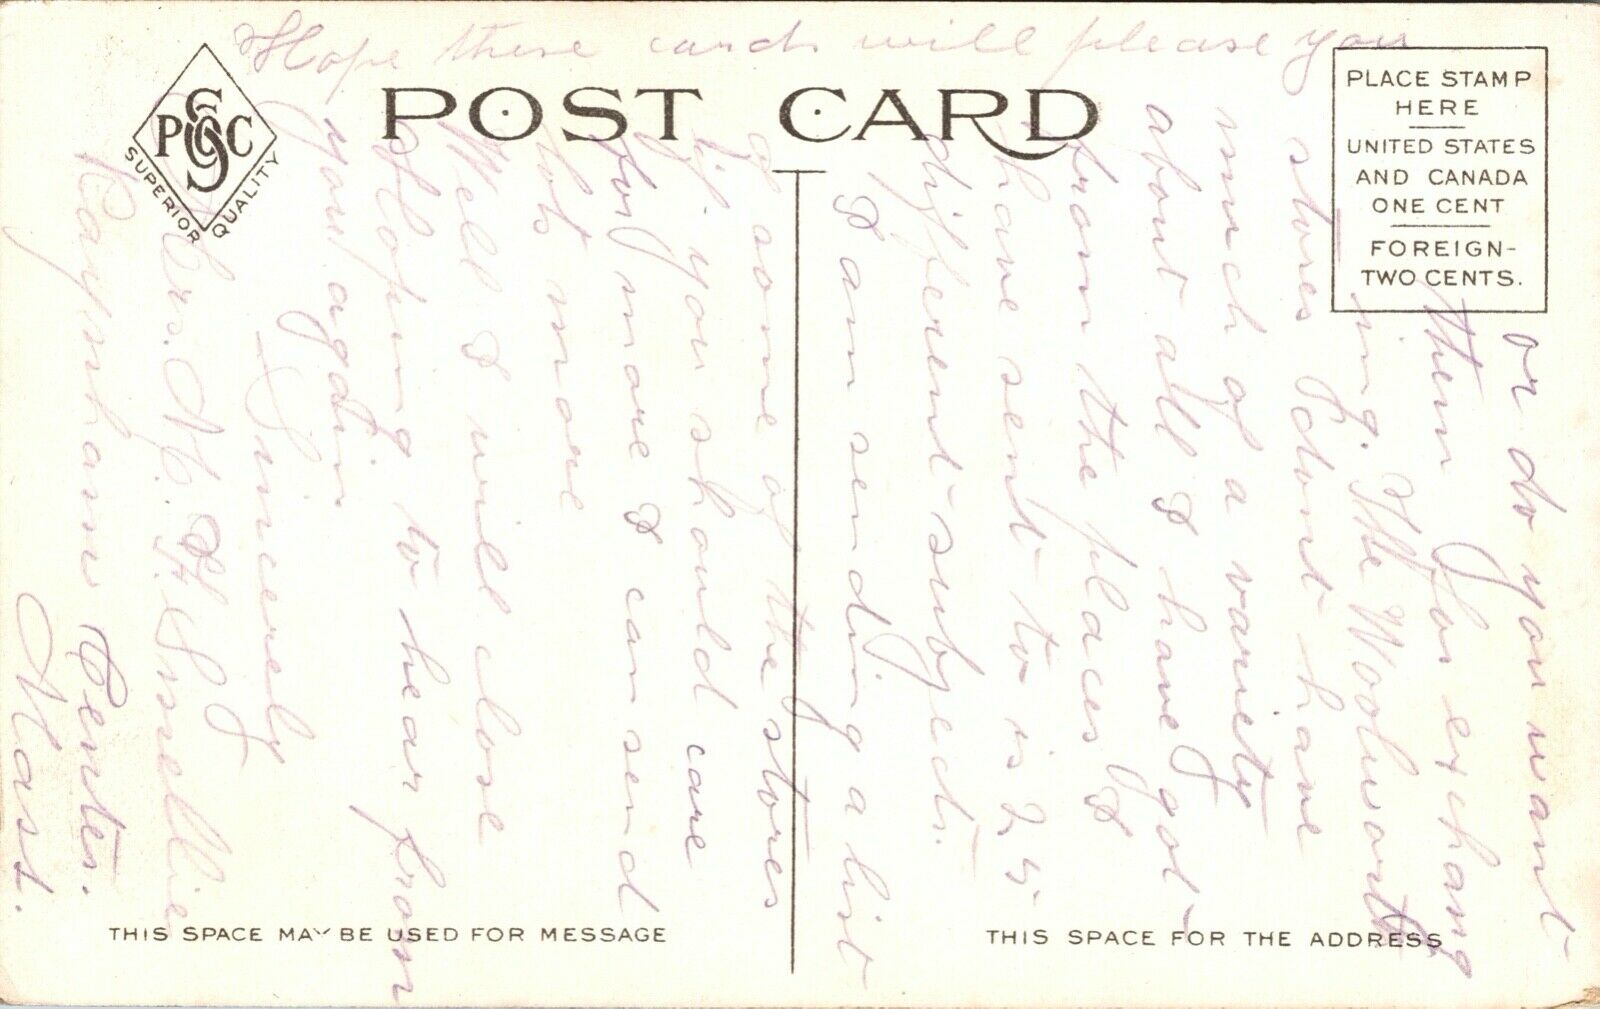 Hope these cards will please you
POST CARD
PSC
SUPERIOR QUALITY
PLACE STAMP
HERE
UNITED STATES
AND CANADA
ONE CENT
FOREIGN-
TWO CENTS.
or do you want
them for exchang
ing. The Woolworth
stores I dont have
much of a variety
about all I have got
from the places I
have sent to is 25
different subjects.
I am sending a list
of some of the stores
if you should care
for more I can send
lots more
Well I will close
Hoping to hear from
you again
Sincerely
Mrs. N. H.
Raynham Center.
Mass.
THIS SPACE MAY BE USED FOR MESSAGE
THIS SPACE FOR THE ADDRESS